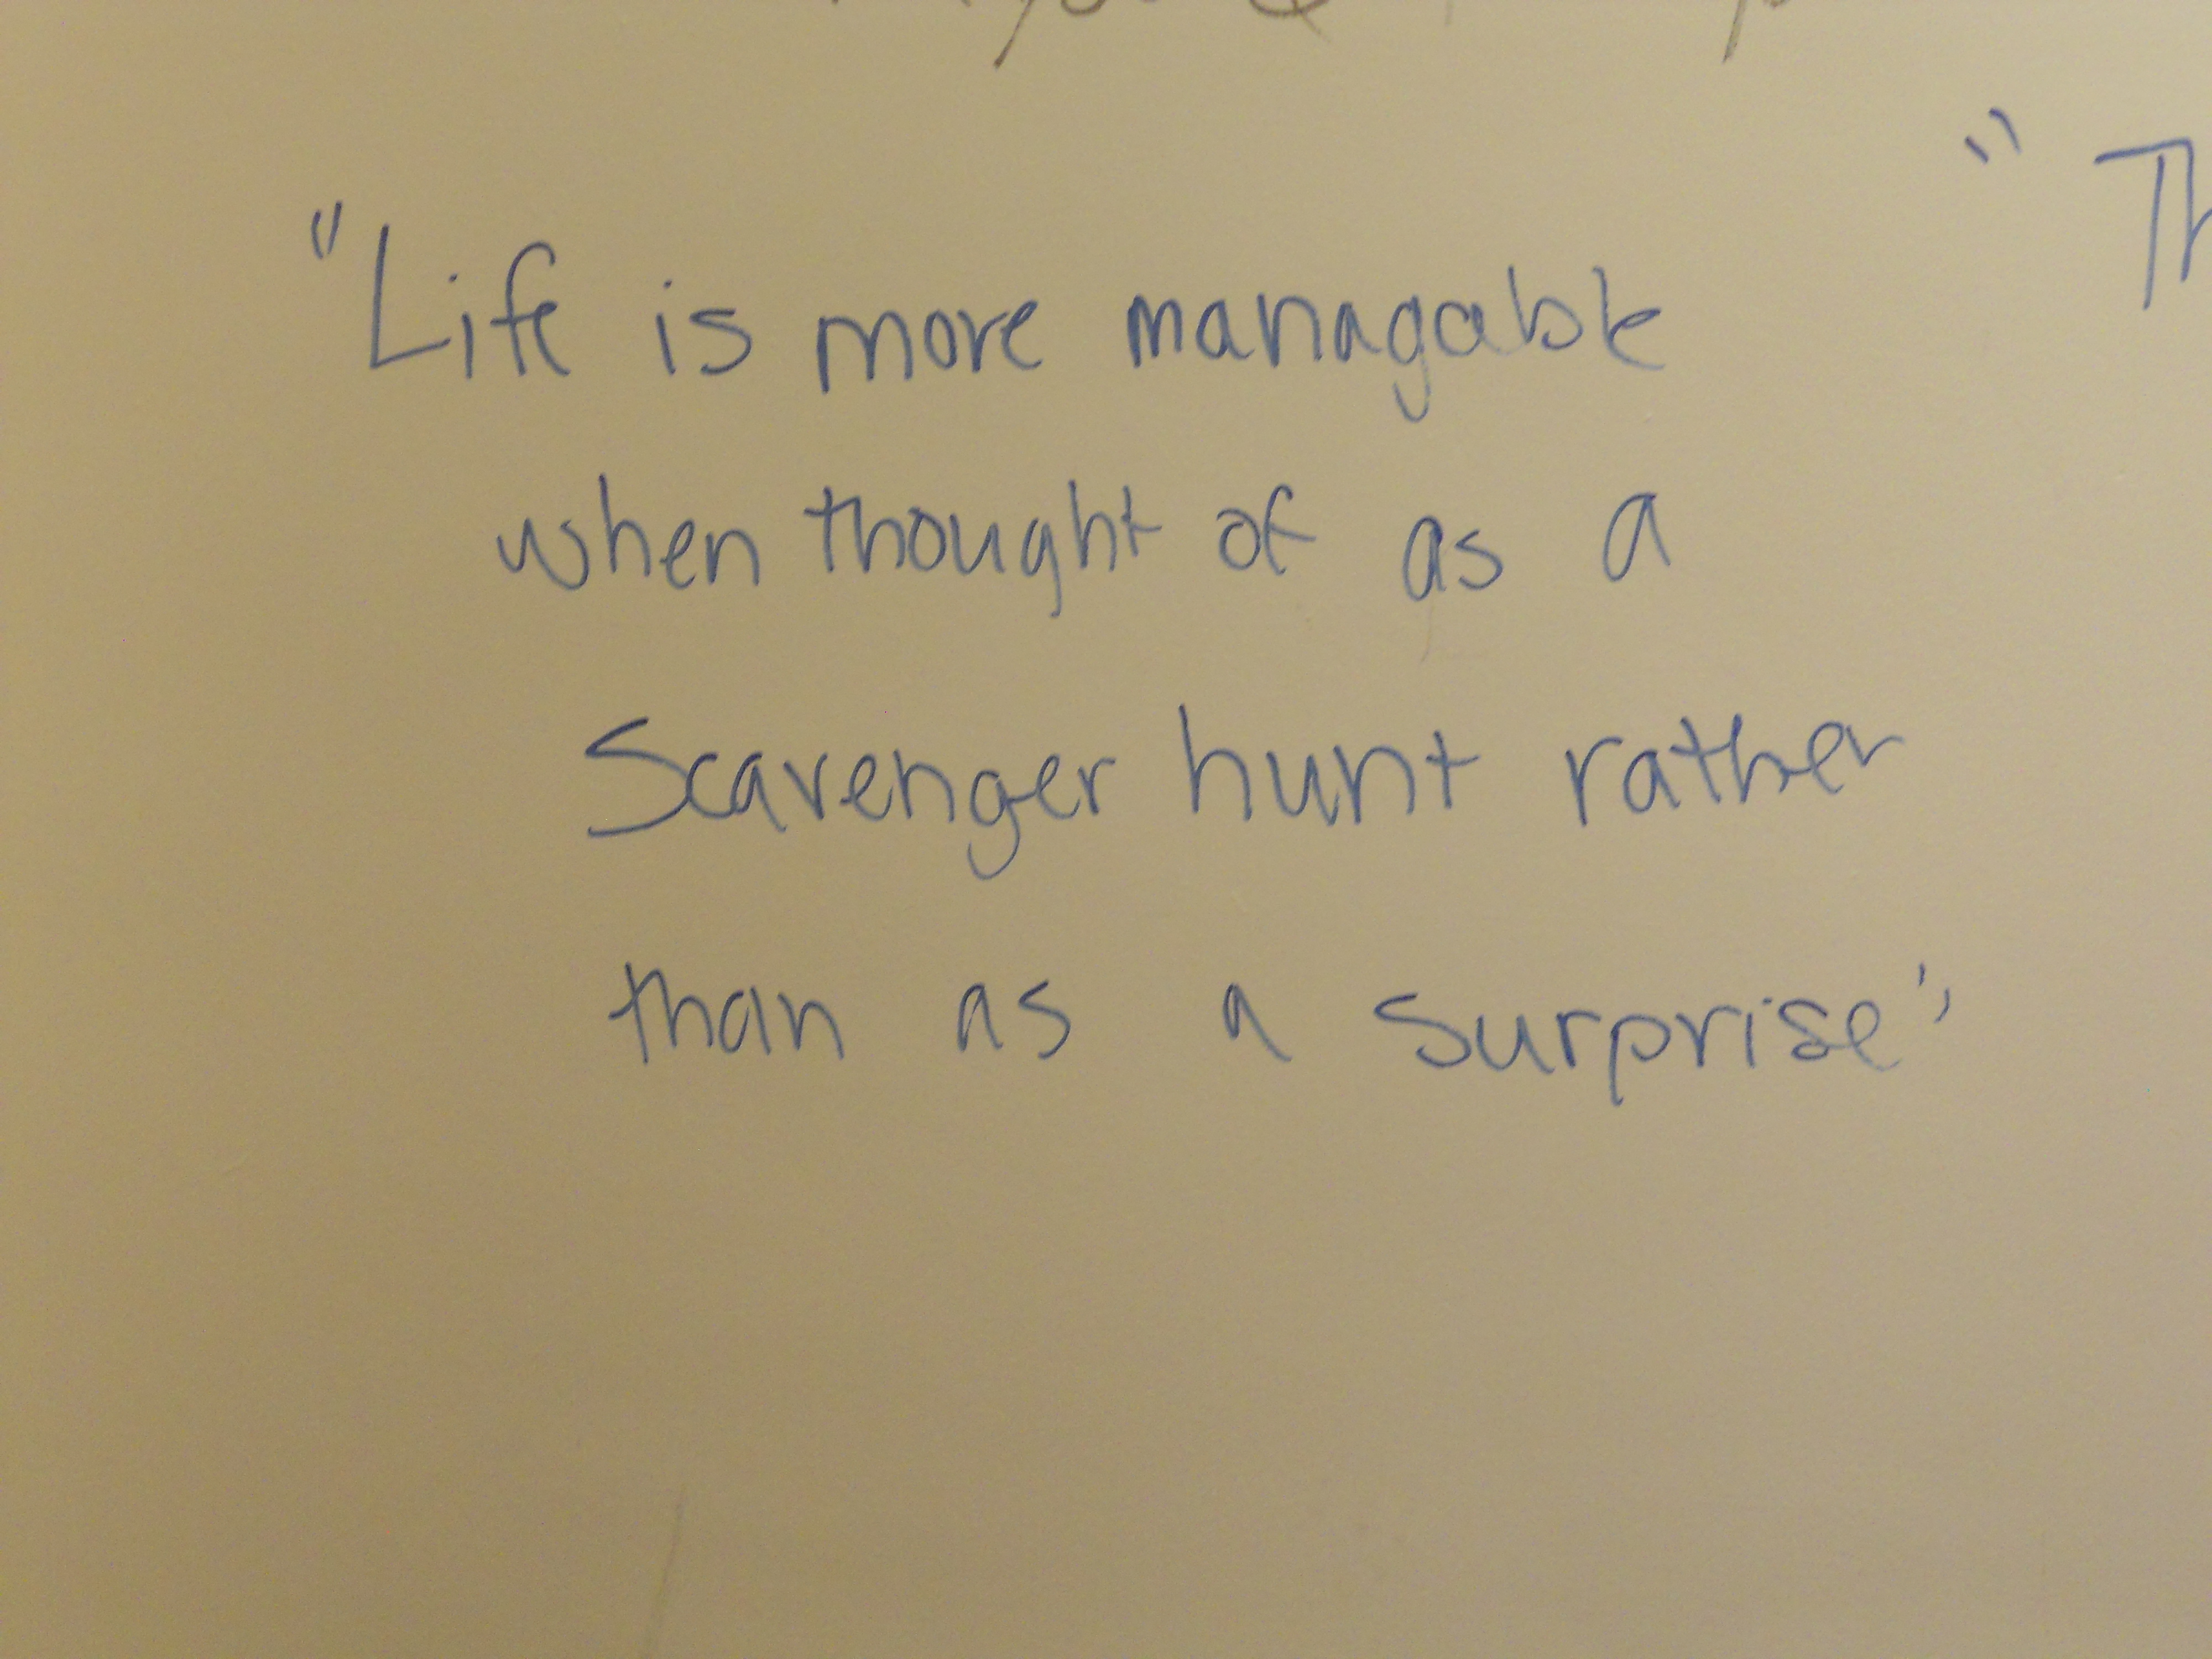 "Life is more managable
when thought of as a
Scavenger hunt rather
than as a surprise"